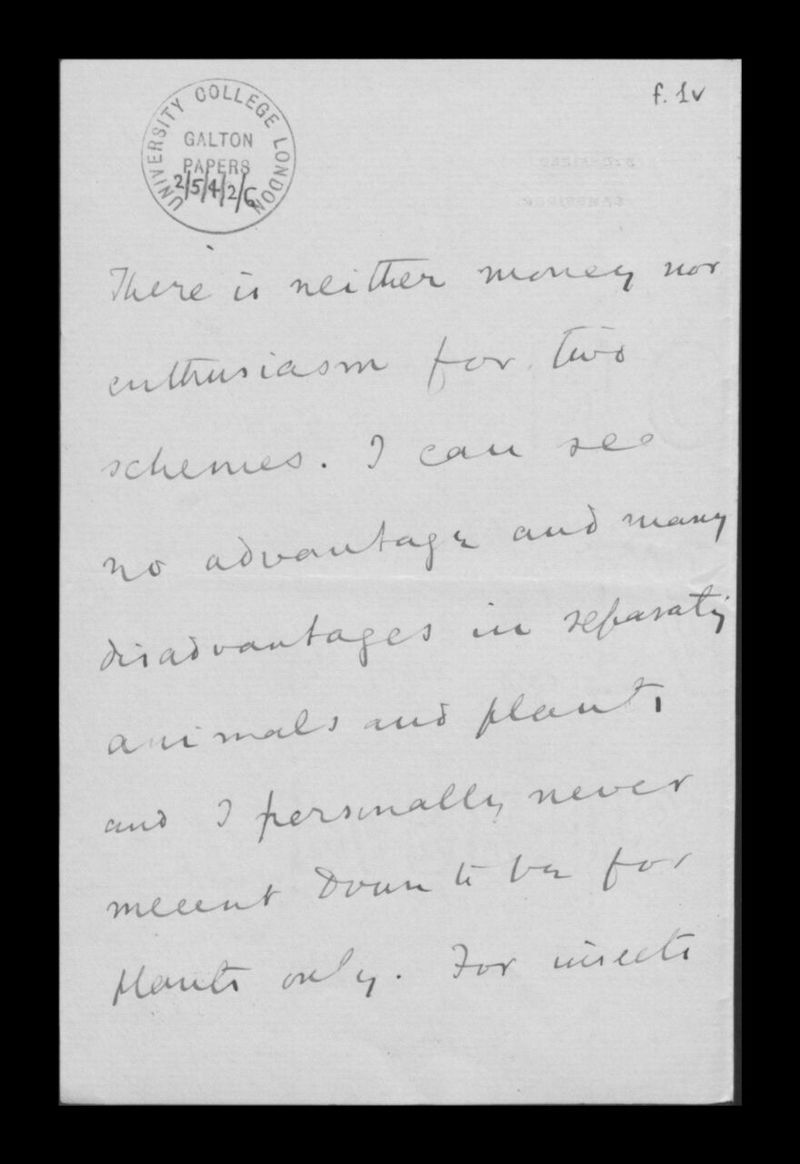 f. 1v
UNIVERSITY COLLEGE LONDON
GALTON
PAPERS
2/5/4/2/6
There is neither money nor
enthusiasm for two
schemes. I can see
no advantage and many
disadvantages in separatg
animals and plants
and I personally never
meant Down to be for
plants only. For insects